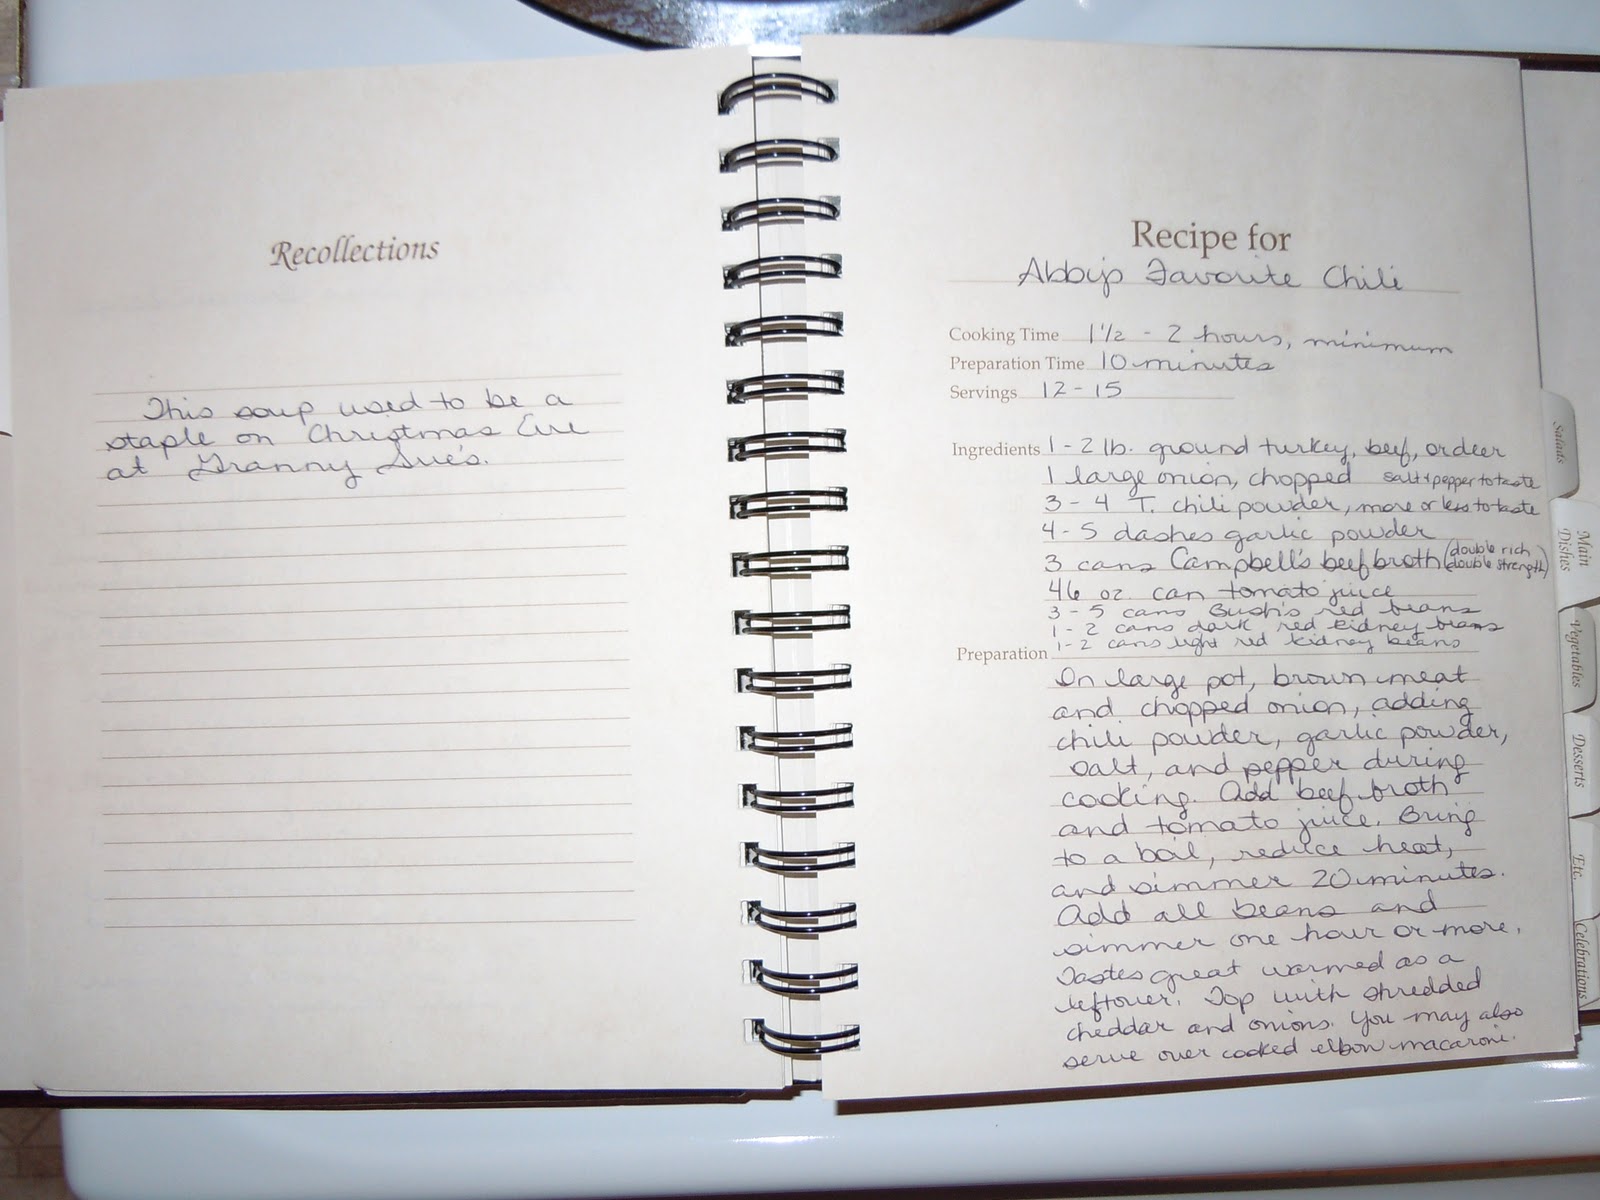 Recollections
This soup used to be a
staple on Christmas Eve
at Granny Sue's.
Recipe for
Abby's Favorite Chili
Cooking Time 1 1/2 - 2 hours, minimum
Preparation Time 10 minutes
Servings 12-15
Ingredients 1-2 lb. ground turkey, beef, or deer
1 large onion, chopped salt + pepper to taste
3-4 T. chili powder, more or less to taste
4-5 dashes garlic powder
3 cans Campbell's beef broth (double rich double strength)
46 oz. can tomato juice
3-5 cans Bush's red beans
1-2 cans dark red kidney beans
1-2 cans light red kidney beans
Preparation
In large pot, brown meat
and chopped onion, adding
chili powder, garlic powder,
salt, and pepper during
cooking. Add beef broth
and tomato juice. Bring
to a boil, reduce heat,
and simmer 20 minutes.
Add all beans and
simmer one hour or more.
Tastes great warmed as a
leftover. Top with shredded
cheddar and onions. You may also
serve over cooked elbow macaroni.
Salads
Main
Dishes
Vegetables
Desserts
Etc.
Celebrations